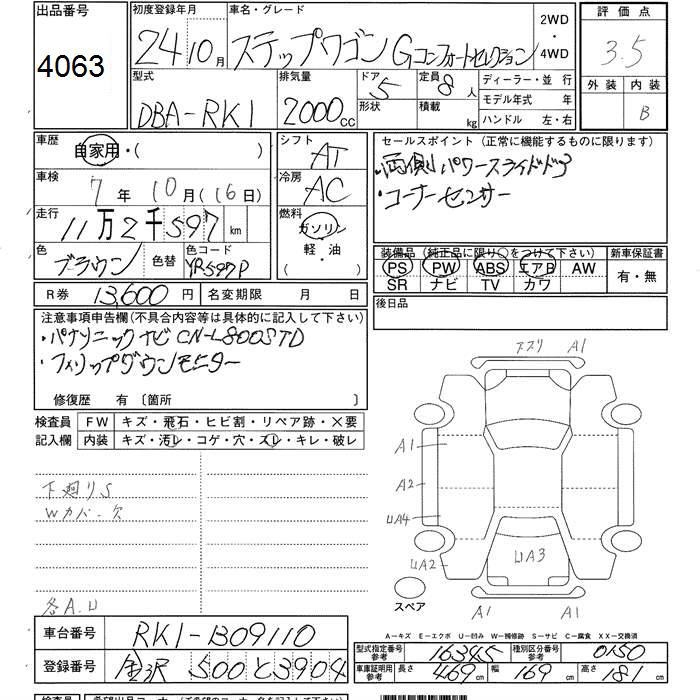 出品番号
4063
初度登録年月
24 10月
車名・グレード
ステップワゴン Gコンフォートセレクション
2WD
・
4WD
評価点
3.5
外装 内装
B
型式
DBA-RK1
排気量
2000cc
ドア
5
形状
定員
8人
積載
kg
ディーラー・並行
モデル年式 年
ハンドル 左・右
車歴
自家用・( )
車検
7年 10月(16日)
走行
11万2千597km
色
ブラウン
色替
色コード
YR597P
シフト
AT
冷房
AC
燃料
ガソリン
軽・油
( )
セールスポイント(正常に機能するものに限ります)
・両側パワースライドドア
・コーナーセンサー
装備品(純正品に限り○をつけて下さい) 新車保証書
PS PW ABS エアB AW 有・無
SR ナビ TV カワ
後日品
R券 13,600円 名変期限 月 日
注意事項申告欄(不具合内容等は具体的に記入して下さい)
・パナソニックナビ CN-L800STD
・フリップダウンモニター
修復歴 有〔箇所 〕
検査員 FW キズ・飛石・ヒビ割・リペア跡・×要
記入欄 内装 キズ・汚レ・コゲ・穴・スレ・キレ・破レ
下廻りS
Wカバー欠
各A.U
ススリ A1
A1
A2
UA4
UA2
UA3
A1 A1
スペア
A-キズ E-エクボ U-凹み W-補修跡 S-サビ C-腐食 XX-交換済
車台番号 RK1-1309110
登録番号 金沢 500 と 3904
型式指定番号 参考 16345 種別区分番号 参考 0150
車庫証明用 参考 長さ 469cm 幅 169cm 高さ 181cm